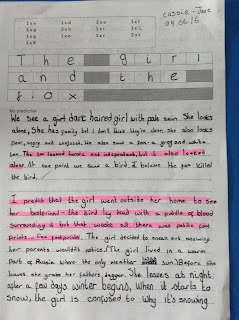 Cassie-Jane
09.06.16
The girl
and the
fox
My prediction
We see a girl dark haired girl with pale skin. She looks
alone, She has family but I don't think they're close, she also looks
poor, angry and confused. We also saw a fox- a grey and white
fox. The fox looked heroic and independent, but it also looked
alone. At one point we saw a bird, I believe the fox killed
the bird.
I predict that the girl went outside her home to see
her bestfriend- the bird lay dead with a puddle of blood
surrounding it but that wasn't all there was public foot
prints... fox footprints. The girl decided to sneak out knowing
her parents wouldn't notice. The girl lived in a warm
part of Russia where the only weather was sun. Before she
leaves she grabs her fathers dagger. She leaves at night,
after a few days winter begins, when it starts to
snow, the girl is confused to why it's snowing